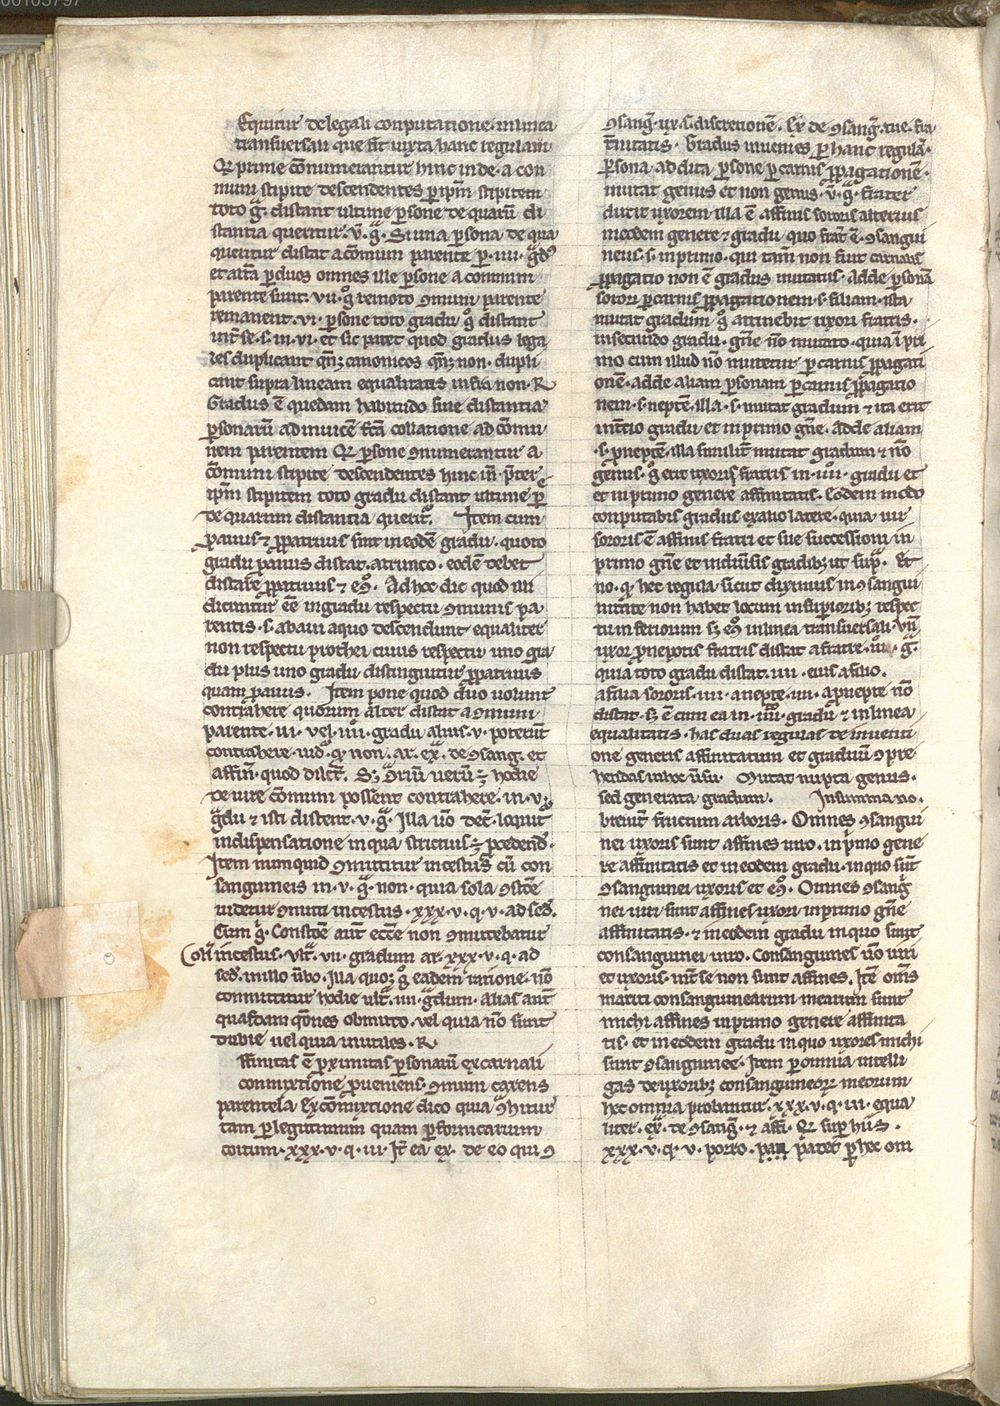 00105797
Equitur de legali conputatione. in linea
transuersali que fit iuxta hanc regulam
Qr prime co̅numerantur hinc inde. a con
muni stipite descendentes p̱ ip̅m stipitem
toto g̅. distant ultime p̱sone de quaru̅ di
stantia queritur. v̅. g̅. Si una p̱sona de qua
queritur distat a co̅muni parente p̱. iiii. g̅d̾
et alt̾a p̱ duos omnes ille p̱sone a commun
parente sunt. vii. g̊ remoto ꝯmuni parente
remanent. vi. p̱sone toto gradu g̊ distant
int̾ se. s. in. vi. et sic patet quod gradus lega
les duplicant qn̅qꝫ canonicos qn̅qꝫ non. dupli
cant supra lineam equalitatis infra non. R
Gradus e̅ quedam habitudo siue distantia
p̱sonaru̅ ad inuice̅ fc̅a collatione ad co̅mu
nem parentem Qr p̱sone ꝯnumerantur a
co̅muni stipite descendentes hinc in̅. p̱ter
ip̅m stipitem toto gradu distant ultime p̱
de quarum distantia querit̾. Item cum
p̱auus ⁊ ꝓpatruus sint in eode̅ gradu. quoto
gradu p̱auus distat. a trunco. eode̅ debet
distare ꝓpatruus ⁊ e̾9. Ad hoc dic quod illi
dicuntur ee̅ in gradu respectu ꝯmunis pa
rentis. s. abaui a quo descendunt equaliter
non respectu prothei cuius respectu uno gra
du plus uno gradu distinguitur ꝓpatruus
quam p̱auus. Item pone quod duo uolunt
contrahere quorum alter distat a ꝯmuni
parente. iii. vel. iiii. gradu alius. v. poterut̅
contrahere. uid̾. q̱ non. ar. ex̅. de ꝯsang. et
affin̅. quod dilct̅. Sꝫ ꝯ̾riu̅ ueru̅ ꝫ hodie
de iure co̅muni possent contrahere. in. v.
g̅du ⁊ isti distent. v. g̅. Illa u̅o dec̅. loquit̾
in dispensatione in qua strictius ꝫ p̱cedend̾.
Item numquid ꝯmittitur incestus cu̅ con
sanguineis in. v. g̅. non. quia sola ꝯsto̅e
uidetur ꝯmitti incestus. xxx. v. q. v. ad sed̾.
Cum g̊. Consto̅e aut̅ ecc̅e non ꝯmittebatur
incestus. ult̾. vii. gradum ar. xxx. v. q. ad
sed̾. in illo u̅bo. Illa quoqꝫ g̊ eadem ratione. no̅
committitur hodie ult̾. iiii. g̅dum. alias aut̅
quasdam q̅ones obmitto. vel quia no̅ sunt
dubie uel quia inutiles. R
ffinitas e̅ p̱ximitas p̱sonaru̅ ex carnali
conmixtione ꝓueniens. ꝯmuni carens
parentela. Ex co̅mixtione dico quia ꝯhitur
tam p̱ legitimum quam p̱ fornicarium
coitum. xxx. v. q. iii. It̾ ea ex. de eo qui ꝯ
ꝯsang̅. ux. s. discretione̅. Ex̅ de ꝯsang̅. tue. fra
t̾nitatis. Gradus inuenies p̱ hanc regula̅.
p̱sona. addita p̱sone p̱ carnis ꝓpagatione̅.
mutat genus et non genus. v̅. g̅. frater
ducit uxorem illa e̅ affinis sororis alterius
in eodem genere ⁊ gradu quo frat̾ e̅. ꝯsangui
neus. s. in primo. qui tam̅ non sunt carnalis
ꝓpagatio non e̅ gradus mutatus. Adde p̱sona̅
sorori p̱ carnis ꝓpagationem. s. filiam. ista
mutat gradum g̊ attinebit uxori fratris.
in secundo gradu. gn̅e no̅ mutato. quia i̅ pri
mo cum illud no̅ mutetur p̱ carnis ꝓpagati
one̅. adde aliam p̱sonam p̱ carnis ꝓpagatio
nem. s. nepte̅. illa. s. mutat gradum ⁊ ita erit
in t̾cio gradu et in primo gn̅e. Adde aliam
.s. p̱nepte̅. illa similit̾ mutat gradum ⁊ no̅
genus. g̊ erit uxoris fratris in. iiii. gradu et
et in primo genere affinitatis. Eodem modo
conputabis gradus ex alio latere. quia uir
sororis e̅ affinis fratri et sue successioni in
primo gn̅e et in diu̾sis gradibꝫ ut sup̾. Et
no. q̱ hec regula sicut diximus in ꝯsangui
nitate non habet locum in sup̱ioribꝫ respec
tu inferiorum sꝫ e̾9 in linea transuersali. vn̅
uxor p̱nepotis fratris distat a fratre. iiii. g̅.
quia toto gradu distat. iiii. eius a filio.
a filia sororis. iiii. a nepte. iiii. a p̱nepte no̅
distat. sꝫ e̅ cum ea in. iiii. gradu ⁊ in linea
equalitatis. has duas regulas de inuenti
one generis affinitatum et graduu̅ ꝯpre
hendas in hoc u̅su. Mutat nupta genus.
sed generata gradum. In summa no.
breuit̾ fructum arboris. Omnes ꝯsangui
nei uxoris sunt affines uiro. in p̱mo gene
re affinitatis et in eodem gradu. in quo su̅t
ꝯsanguinei uxoris et e̾9. Omnes ꝯsang̅
nei uiri sunt affines uxori in primo gn̅e
affinitatis. ⁊ in eodem gradu in quo sunt
consanguinei uiro. Consanguinei u̅o uiri
et uxoris. int̾ se non sunt affines. Ite̅ om̅s
mariti consanguinearum mearum sunt
michi affines in primo genere affinita
tis. et in eodem gradu in quo uxores michi
sunt ꝯsanguinee. Item p̱ omnia intelli
gas de uxoribꝫ consanguineorꝫ meorum
hec omnia probantur. xxx. v. q. iii. equa
liter. ex̅. de ꝯsang̅. ⁊ affi. Qr sup̱ hiis.
xxx. v. q. v. porro. patet p̱ hec om